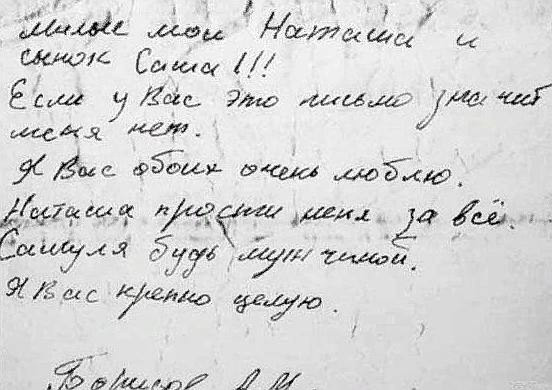 Милые мои Наташа и
сынок Саша!!!
Если у Вас это письмо значит
меня нет.
Я Вас обоих очень люблю.
Наташа прости меня за всё.
Самуля будь мужчиной.
Я Вас крепко целую.
Борисов А.М.